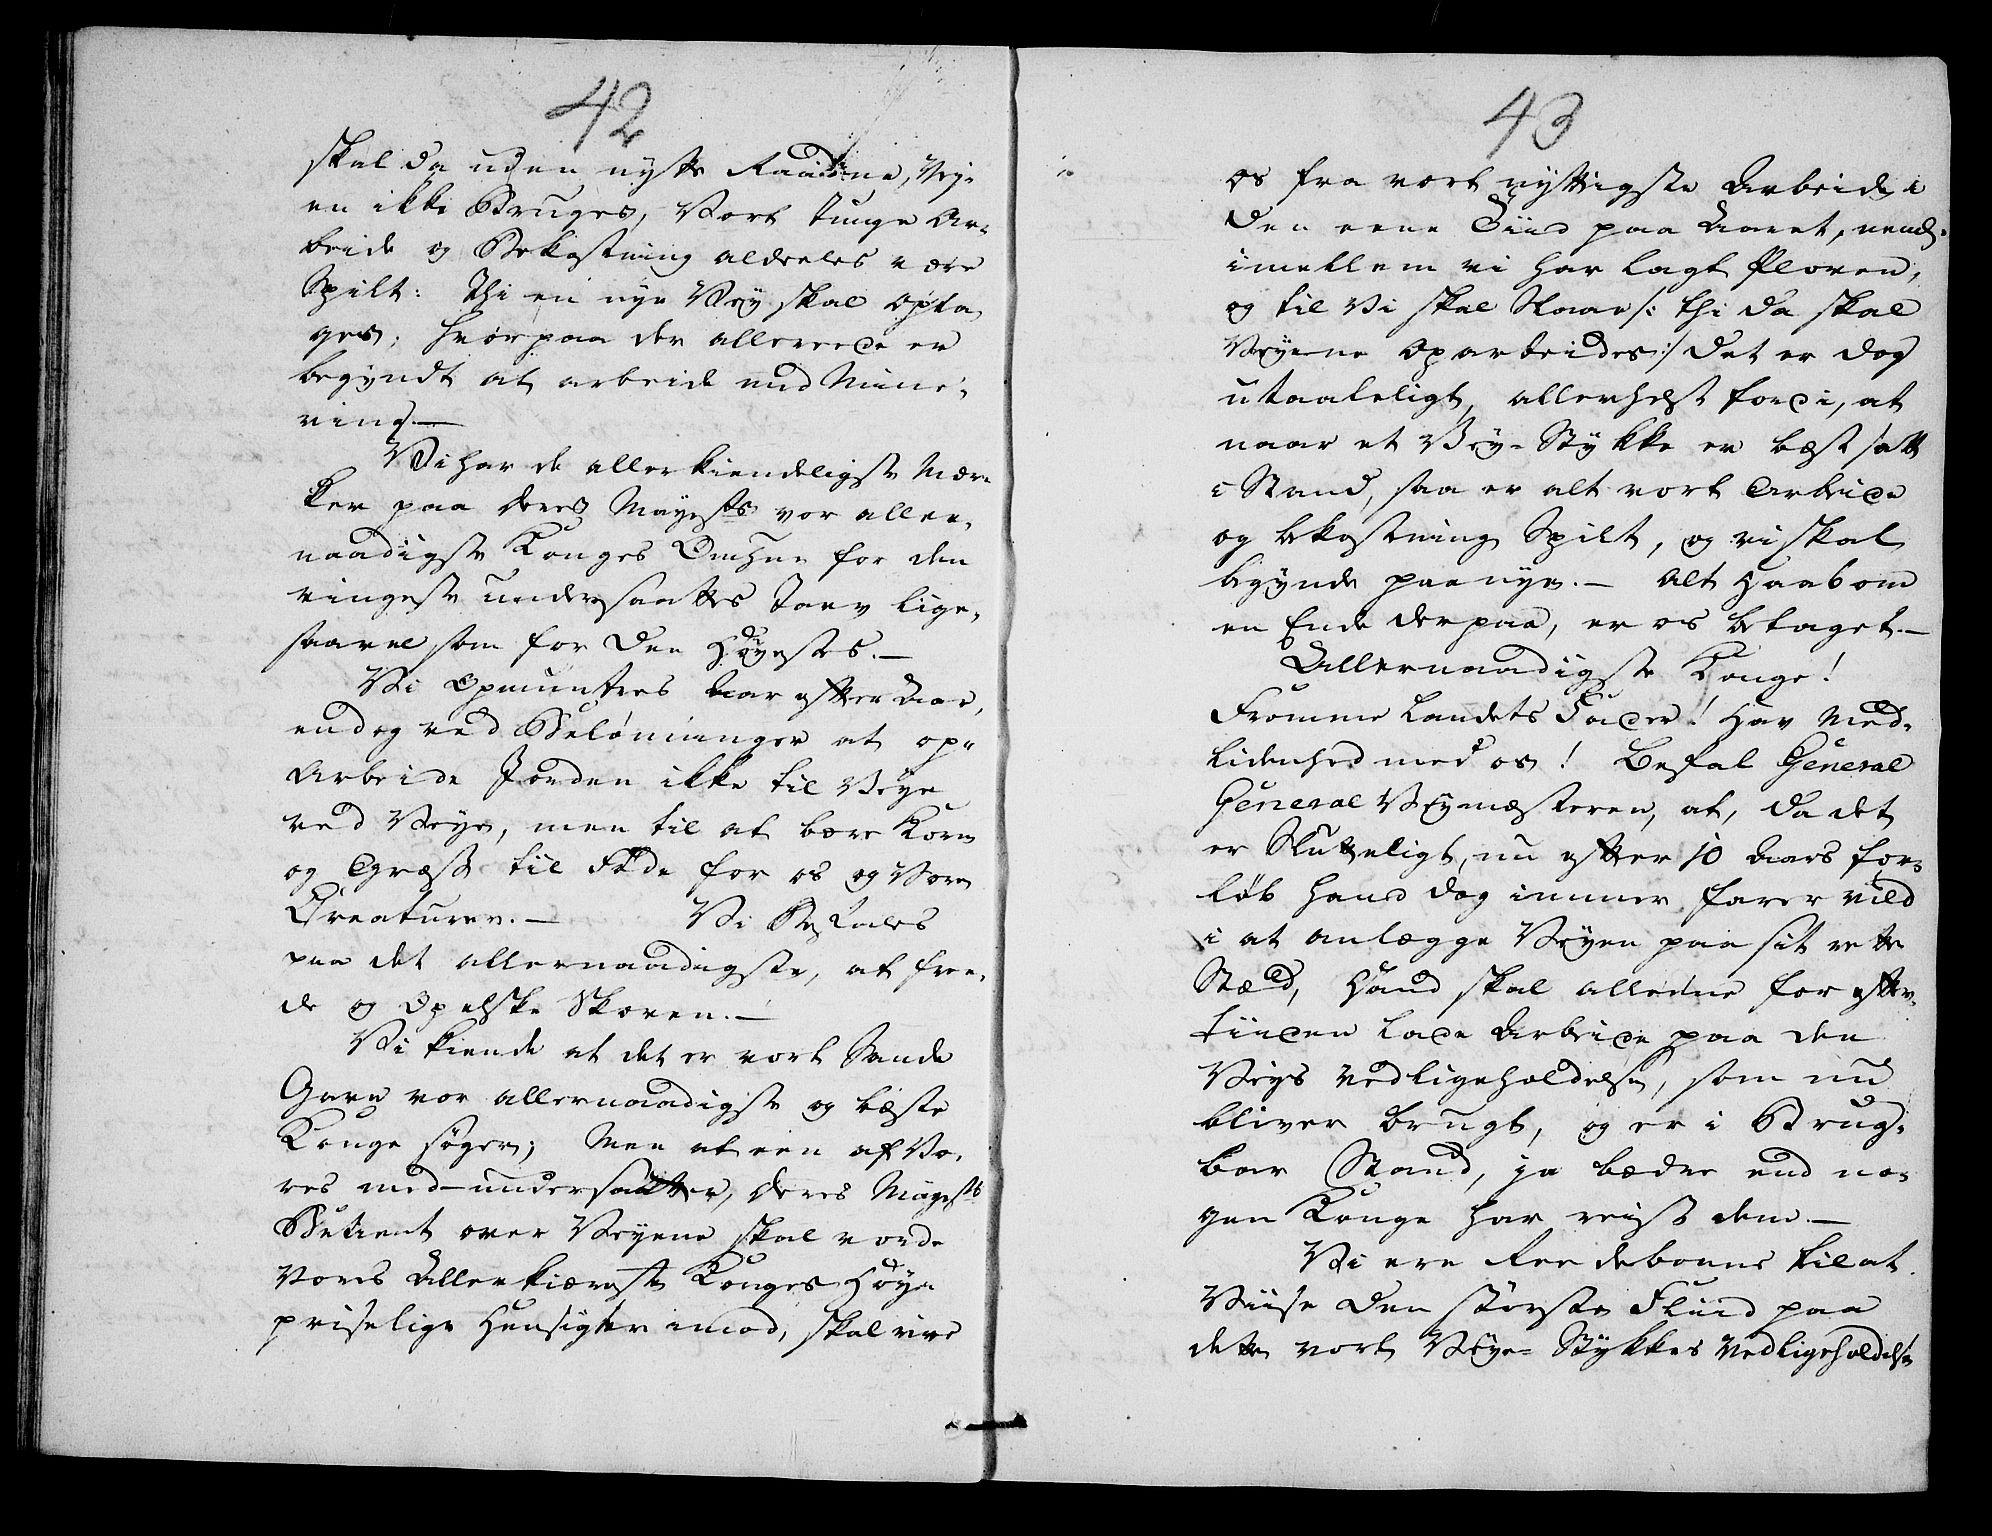 42
skal da uden nytte Raadne, Vey-
en ikke Bruges, Vort tunge Ar-
beide og Bekostning aldeeles være
Spilt: Thi en nye Vey skal opta-
ges; hvorpaa der allereede er
begyndt at arbeide med Mine-
ring.—
Vi har de allerkiendeligste Mær-
ker paa Deres Mayests vor aller-
naadigste Konges Omhue for den
ringeste undersaattes Tarv lige-
saavel som for den Høyestes.—
Vi Opmuntres Aar efter Aar,
endog ved Belønninger at op-
Arbeide Jorden ikke til Veye
ved Veye, men til at bære Korn
og Græss til Føde for os og Vore
Creaturer.— Vi Befales
paa det allernaadigste, at free-
de og Opelske Skoven.—
Vi kiende at det er vort Sande
Gavn vor allernaadigste og bæste
Konge søger; Men at een af Vo-
res med-undersaatter, Deres Mayests
Betient over Veyene skal vorde
Vores Allerkiæreste Konges Høye
priselige Hensigter imod, skal rive
43
os fra vort nyttigste Arbeide i
den eene Tiid paa Aaret, neml:
imellem vi har lagt Ploven,
og til Vi skal Skaare /: thi da skal
Veyene Oparbeides :/ det er dog
utaaleligt, allerhelst fordi, at
naar et Vey-Stykke er bæst satt
i Stand, saa er alt vort Arbeide
og bekostning Spilt, og vi skal
begynde paa nye.— Alt Haab om
en Ende derpaa, er os betaget.—
Allernaadigste Konge!
Fromme Landets Fader! Hav Med-
lidenhed med os! Befal General
General Veymesteren, at, da det
er Slutteligt, nu efter 10 Aars for-
løb hand dog immer farer vild
i at anlægge Veyen paa sit rette
Stæd, Hand skal alleene for efter-
tiiden lade Arbeide paa den
Veys Vedligeholdelse, som nu
bliver brugt, og er i Brug-
bar Stand, ja bædre end no-
gen Konge har reist dem.—
Vi ere Reedebonne til at
Viise den største Fliid paa
dette vort Veye-Stykkes Vedligeholdelse